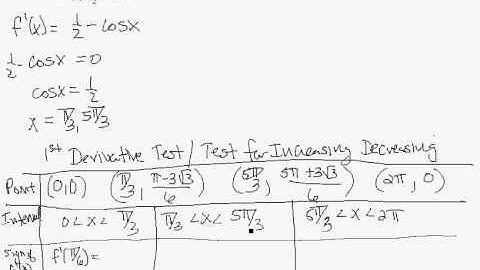 f'(x) = 1/2 - cosx
1/2 - cosx = 0
cosx = 1/2
x = π/3, 5π/3
1st Derivative Test / Test for Increasing Decreasing
Point (0,0) (π/3, π-3√3/6) (5π/3, 5π+3√3/6) (2π, 0)
Interval 0 < x < π/3 π/3 < x < 5π/3 5π/3 < x < 2π
sign of f'(π/6) =